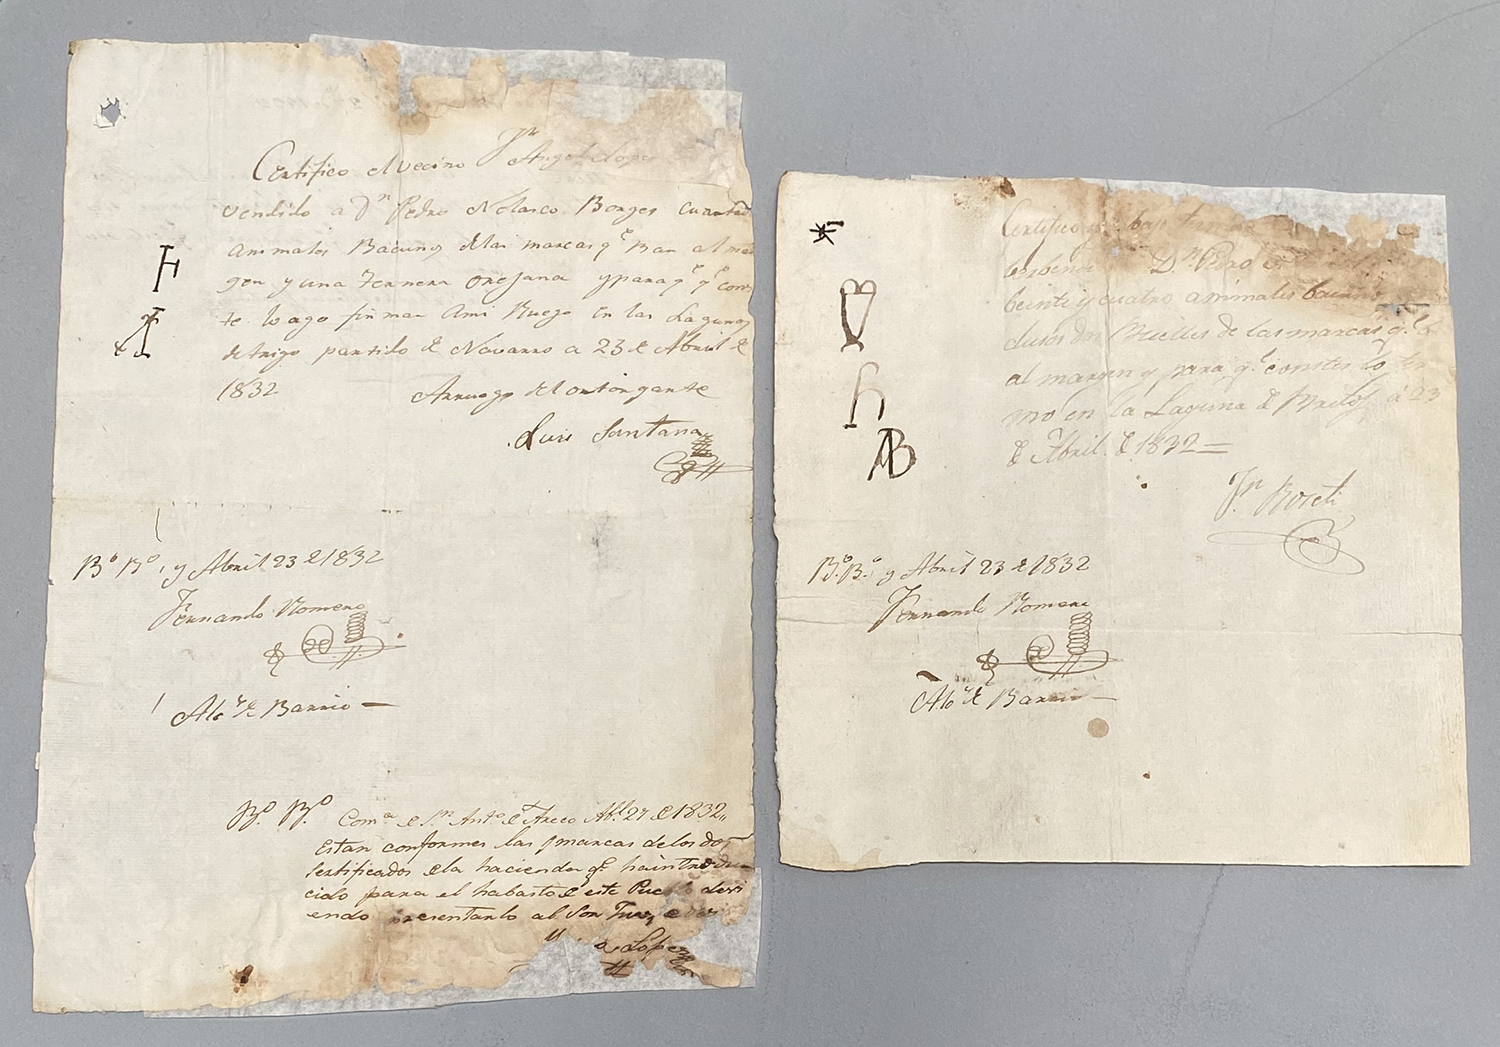 Certifico el vecino Jn Angel Lope
vendido a Dn Pedro Nolasco Borges cuarto
animales Bacunos delas marcas qe Ban al mar
gen y una ternera orejana ypara qe qe cons
te lo ago firmar Ami Ruego en las Lagunas
detrigo partido de Navarro a 23 de Abril de
1832
Arruego del otorgante
Luis Santana
Bo Bo, y Abril 23 de 1832
Fernando Romero
Alce de Barrio
Bo. Bo. Coma de Sn Anto de Areco Abl 27 de 1832,,
Estan conformes las marcas de los dos
sertificados de la hacienda qe ha introdu
cido para el habasto de este Pueblo devi
endo presentarlo al Sor Juez de
Lopez
Certifico bajo
Dn Pedro
beinti y cuatro animales
Bueilles de las marcas qe
al margen y para qe conste lo fir
mo en la Laguna de a 23
de Abril de 1832
Jn
Bo. Bo. y Abril 23 de 1832
Fernando Romero
Alce de Barrio